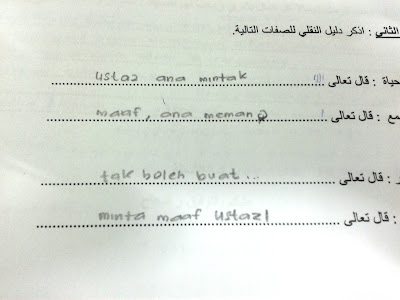 الثاني : اذكر دليل النقلي للصفات التالية.
حياة : قال تعالى ustaz ana mintak
مع : قال تعالى maaf, ana memang
ر : قال تعالى tak boleh buat...
: قال تعالى minta maaf ustaz!